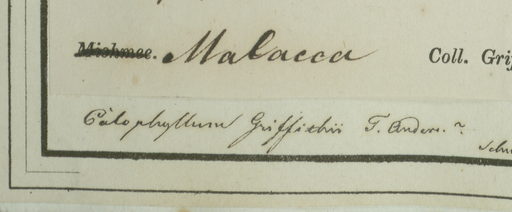 Mishmee. Malacca Coll. Grif
Calophyllum Griffithii T. Anders.